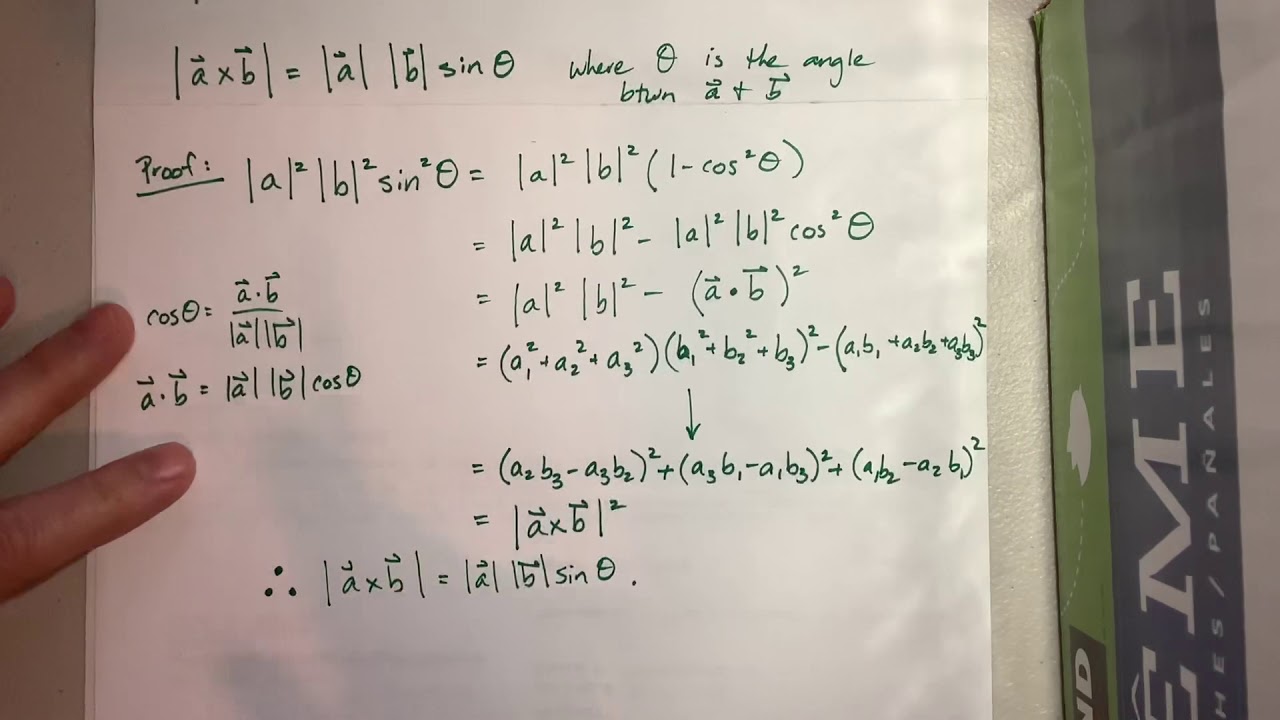 |a⃗ × b⃗| = |a⃗| |b⃗| sin θ where θ is the angle
btwn a⃗ + b⃗
Proof: |a|² |b|² sin²θ = |a|² |b|² (1 - cos²θ)
= |a|² |b|² - |a|² |b|² cos²θ
= |a|² |b|² - (a⃗ · b⃗)²
cosθ = a⃗ · b⃗ / |a⃗| |b⃗|
= (a₁² + a₂² + a₃²)(b₁² + b₂² + b₃)² - (a₁b₁ + a₂b₂ + a₃b₃)²
a⃗ · b⃗ = |a⃗| |b⃗| cosθ
↓
= (a₂b₃ - a₃b₂)² + (a₃b₁ - a₁b₃)² + (a₁b₂ - a₂b₁)²
= |a⃗ × b⃗|²
∴ |a⃗ × b⃗| = |a⃗| |b⃗| sin θ .
ÊME
HES / PAÑALES
ND